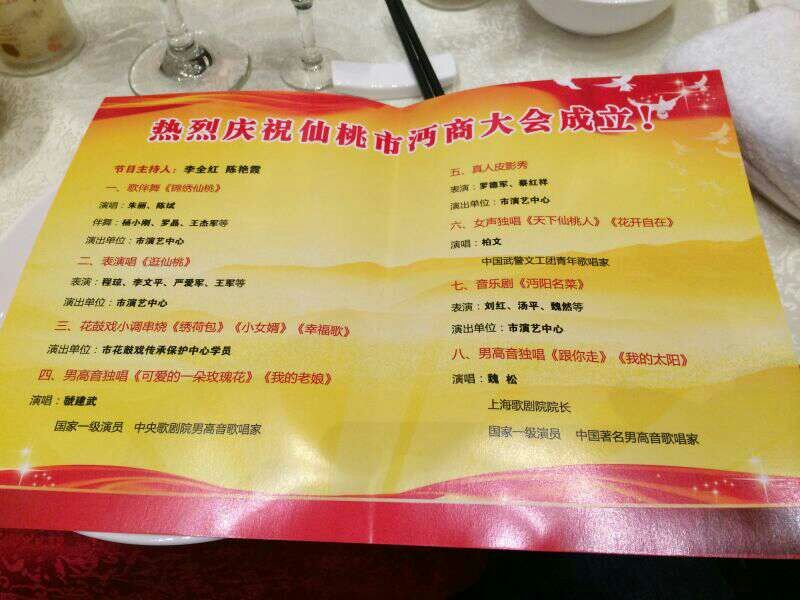 热烈庆祝仙桃市沔商大会成立！
节目主持人：李全红 陈艳霞
一、歌伴舞《锦绣仙桃》
演唱：朱丽、陈斌
伴舞：杨小刚、罗晶、王杰军等
演出单位：市演艺中心
二、表演唱《逛仙桃》
表演：程琼、李文平、严爱军、王军等
演出单位：市演艺中心
三、花鼓戏小调串烧《绣荷包》《小女婿》《幸福歌》
演出单位：市花鼓戏传承保护中心学员
四、男高音独唱《可爱的一朵玫瑰花》《我的老娘》
演唱：虢建武
国家一级演员 中央歌剧院男高音歌唱家
五、真人皮影秀
表演：罗德军、蔡红祥
演出单位：市演艺中心
六、女声独唱《天下仙桃人》《花开自在》
演唱：柏文
中国武警文工团青年歌唱家
七、音乐剧《沔阳名菜》
表演：刘红、汤平、魏然等
演出单位：市演艺中心
八、男高音独唱《跟你走》《我的太阳》
演唱：魏 松
上海歌剧院院长
国家一级演员 中国著名男高音歌唱家